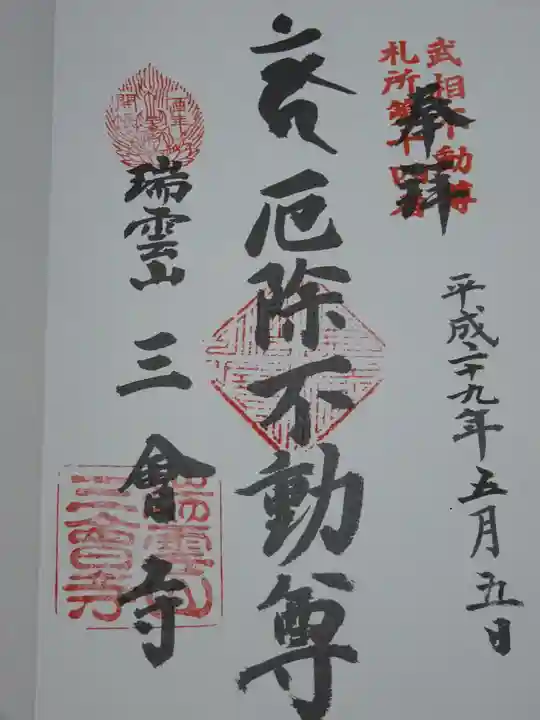 武相不動尊
札所第十四番
奉拝
平成二十九年五月五日
厄除不動尊
酉年
開帳
瑞雲山
三會寺
瑞雲山
三会寺